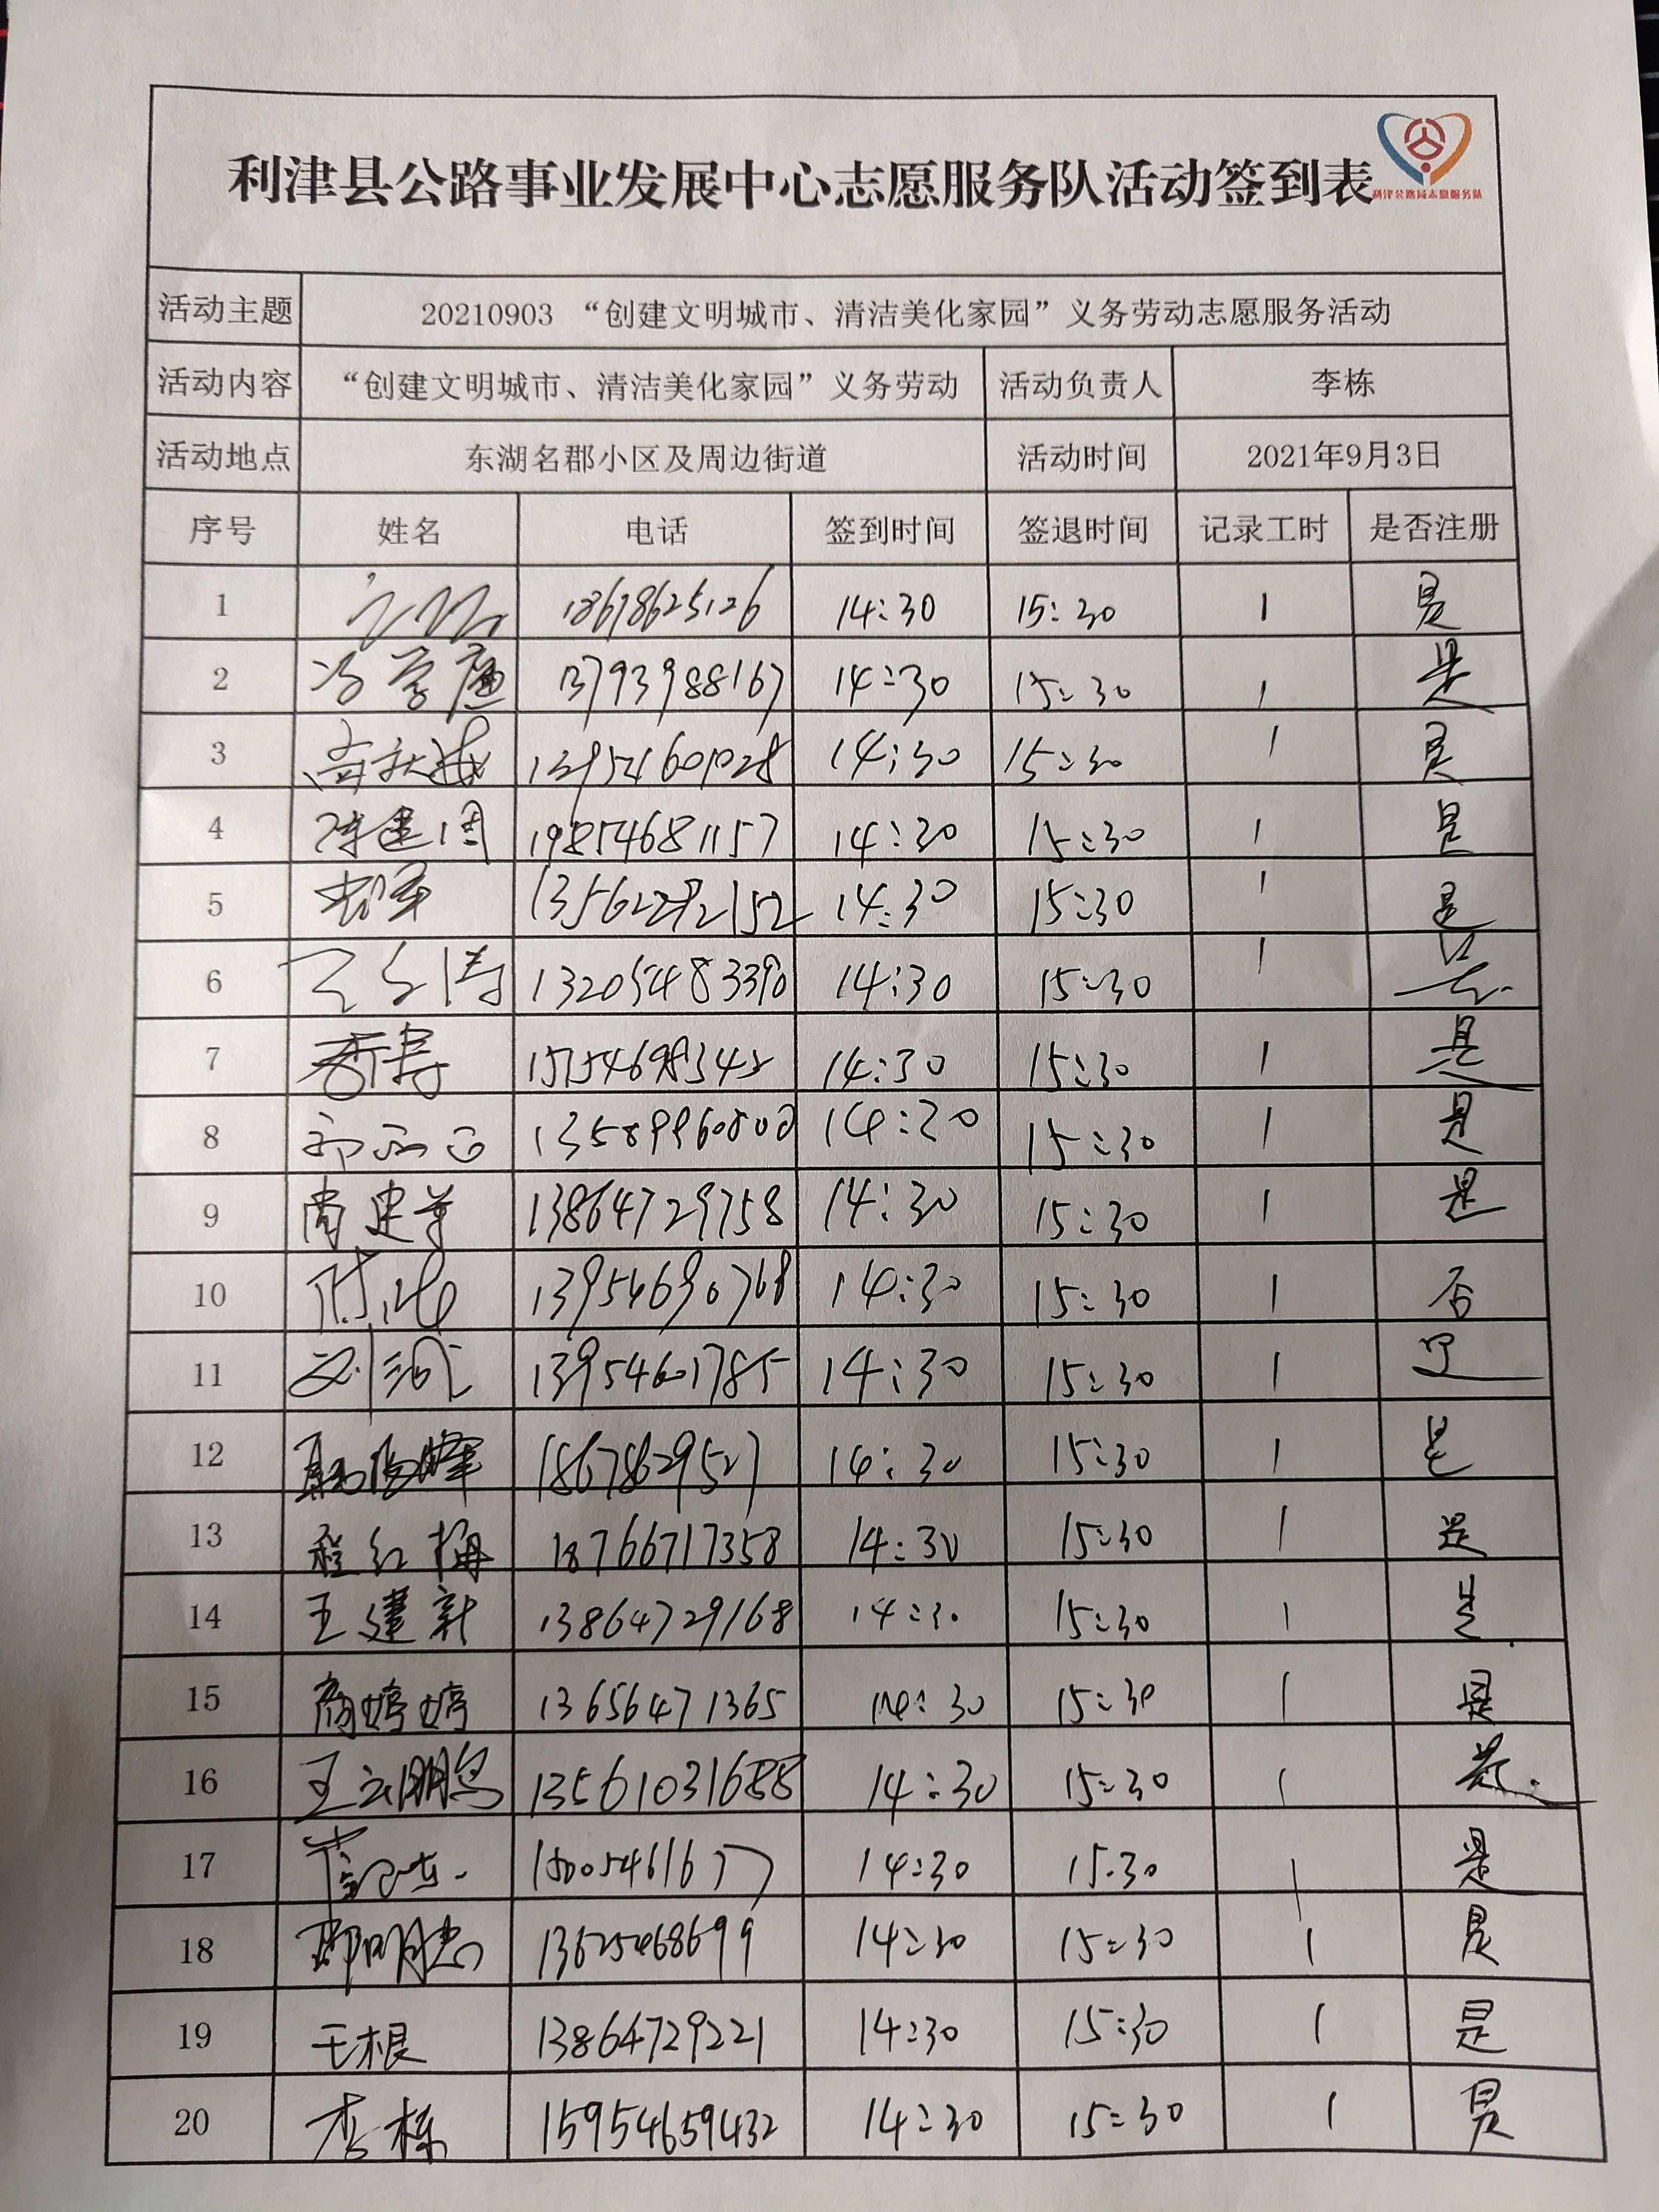 利津县公路事业发展中心志愿服务队活动签到表
利津公路局志愿服务队
活动主题 20210903 “创建文明城市、清洁美化家园”义务劳动志愿服务活动
活动内容 “创建文明城市、清洁美化家园”义务劳动 活动负责人 李栋
活动地点 东湖名郡小区及周边街道 活动时间 2021年9月3日
序号 姓名 电话 签到时间 签退时间 记录工时 是否注册
1 18678625126 14:30 15:30 1 是
2 13793988167 14:30 15:30 1 是
3 14:30 15:30 1 是
4 陈建国 19854681157 14:30 15:30 1 是
5 13562292152 14:30 15:30 1 是
6 13205483390 14:30 15:30 1 是
7 14:30 15:30 1 是
8 13589960800 14:30 15:30 1 是
9 尚建华 13864729758 14:30 15:30 1 是
10 13954690768 14:30 15:30 1 否
11 13954601785 14:30 15:30 1 是
12 18678629527 14:30 15:30 1 是
13 程红梅 18766717358 14:30 15:30 1 是
14 王建新 13864729168 14:30 15:30 1 是
15 商婷婷 13656471365 14:30 15:30 1 是
16 王云鹏 13561031688 14:30 15:30 1 是
17 15005461677 14:30 15:30 1 是
18 13625468699 14:30 15:30 1 是
19 王根 13864729221 14:30 15:30 1 是
20 李栋 15954659432 14:30 15:30 1 是